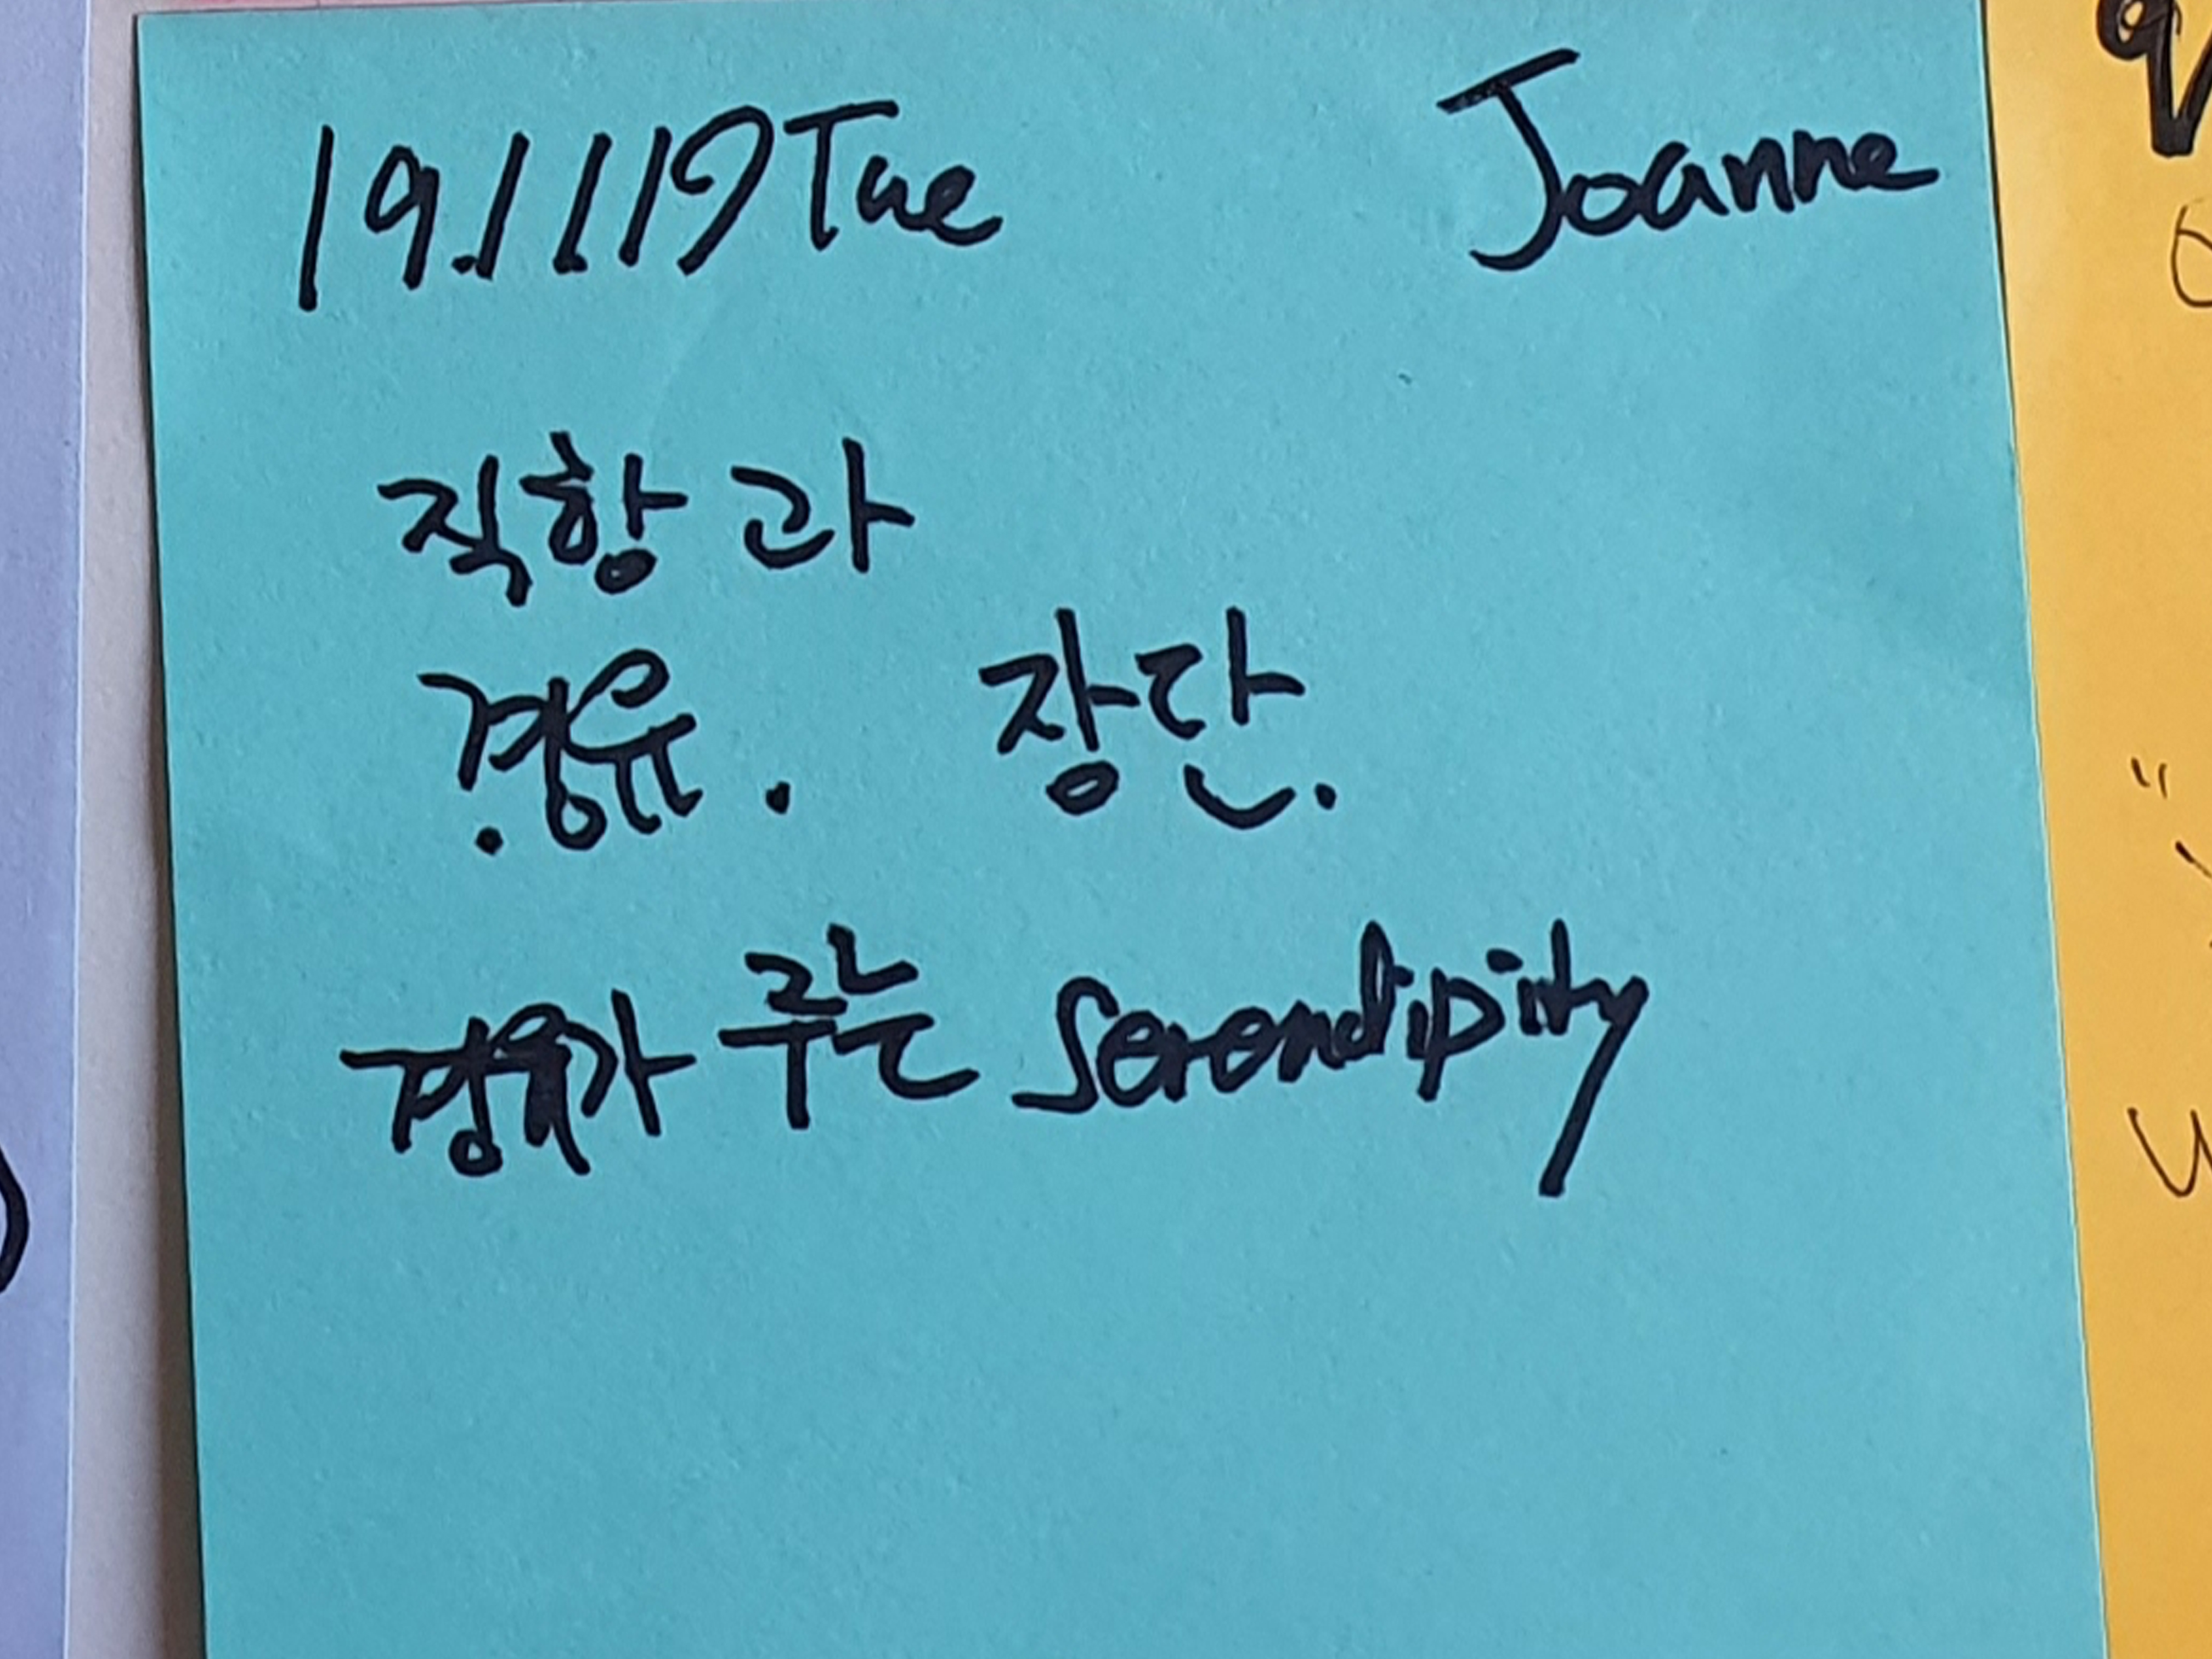 19.11.19 Tue Joanne
직항과
경유. 장단.
경유가 주는 Serendipity